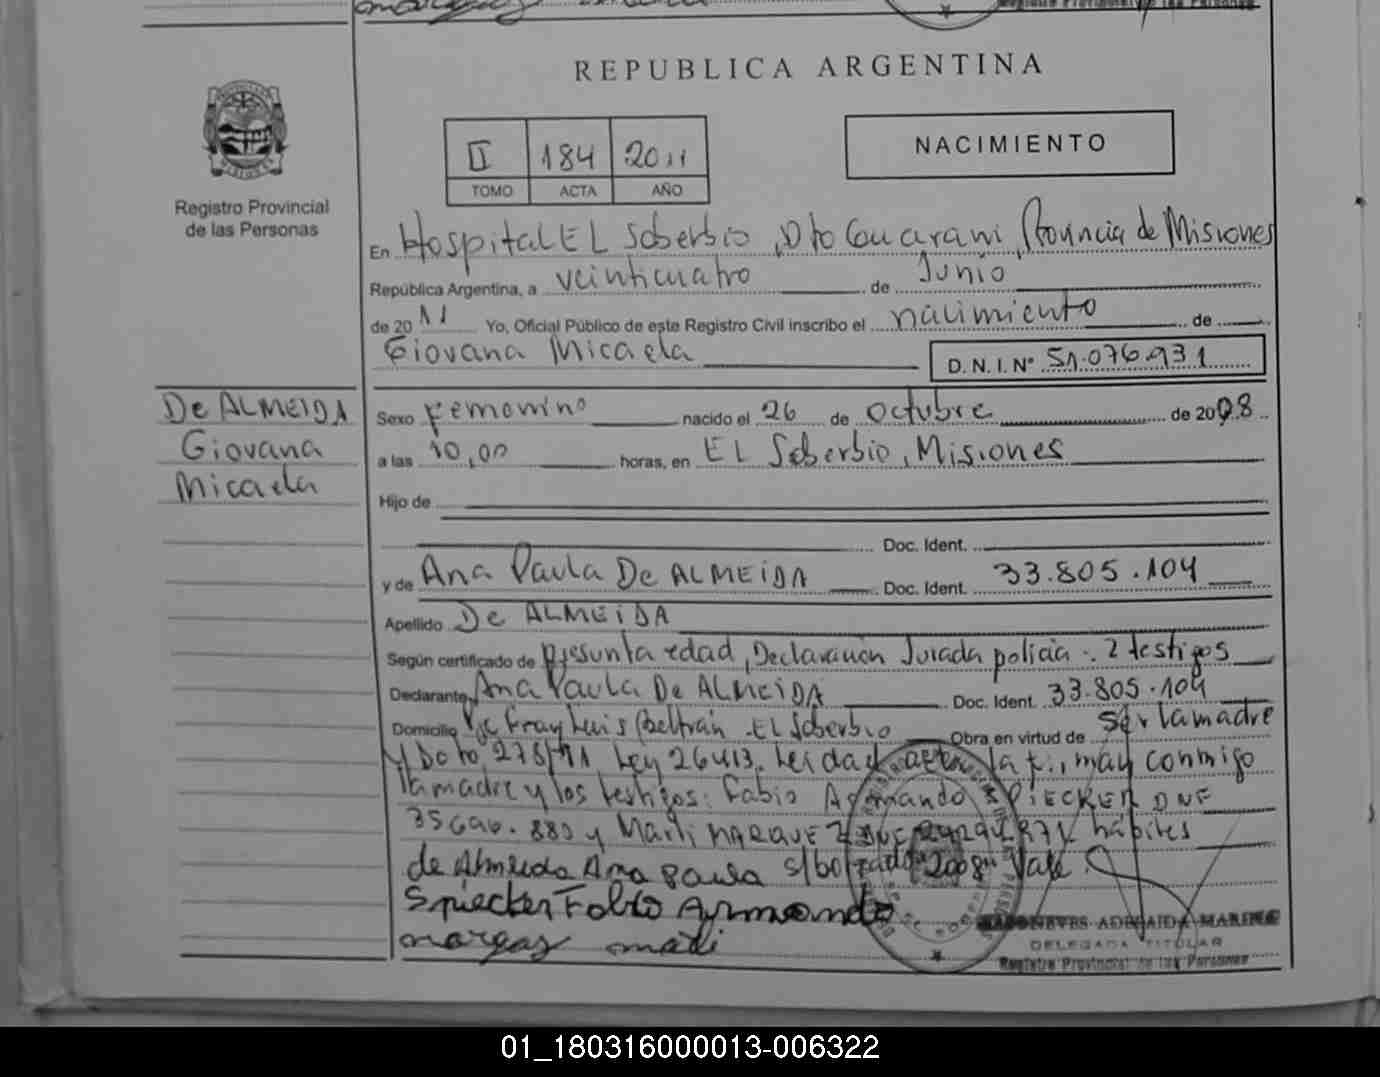 REPUBLICA ARGENTINA
II 184 2011
TOMO ACTA AÑO
NACIMIENTO
Registro Provincial
de las Personas
En Hospital EL Soberbio, Dto Guarani, Provincia de Misiones
República Argentina, a veinticuatro de Junio
de 2011 Yo, Oficial Público de este Registro Civil inscribo el nacimiento de
Giovana Micaela D.N.I. Nº 51.076.931
De ALMEIDA
Giovana
Micaela
Sexo Femenino nacido el 26 de octubre de 2008
a las 10,00 horas, en EL Soberbio, Misiones
Hijo de
Doc. Ident.
y de Ana Paula De ALMEIDA Doc. Ident. 33.805.104
Apellido De ALMEIDA
Según certificado de Presunta edad, Declaración Jurada policia . 2 testigos
Declarante Ana Paula De ALMEIDA Doc. Ident. 33.805.104
Domicilio Fray Luis Beltrán - EL Soberbio Obra en virtud de ser la madre
y Dcto 278/11 Ley 26413. Leida el acta la firman conmigo
la madre y los testigos: Fabio Armando SPIECKER DNI
35.690.880 y Marli MARQUEZ DNI hábiles
de Almeida Ana paula s/borrado "2008" Vale.
Spiecker Fabio Armando
NEVES ADELAIDA MARINE
DELEGADA TITULAR
Registro Provincial de las Personas
01_180316000013-006322